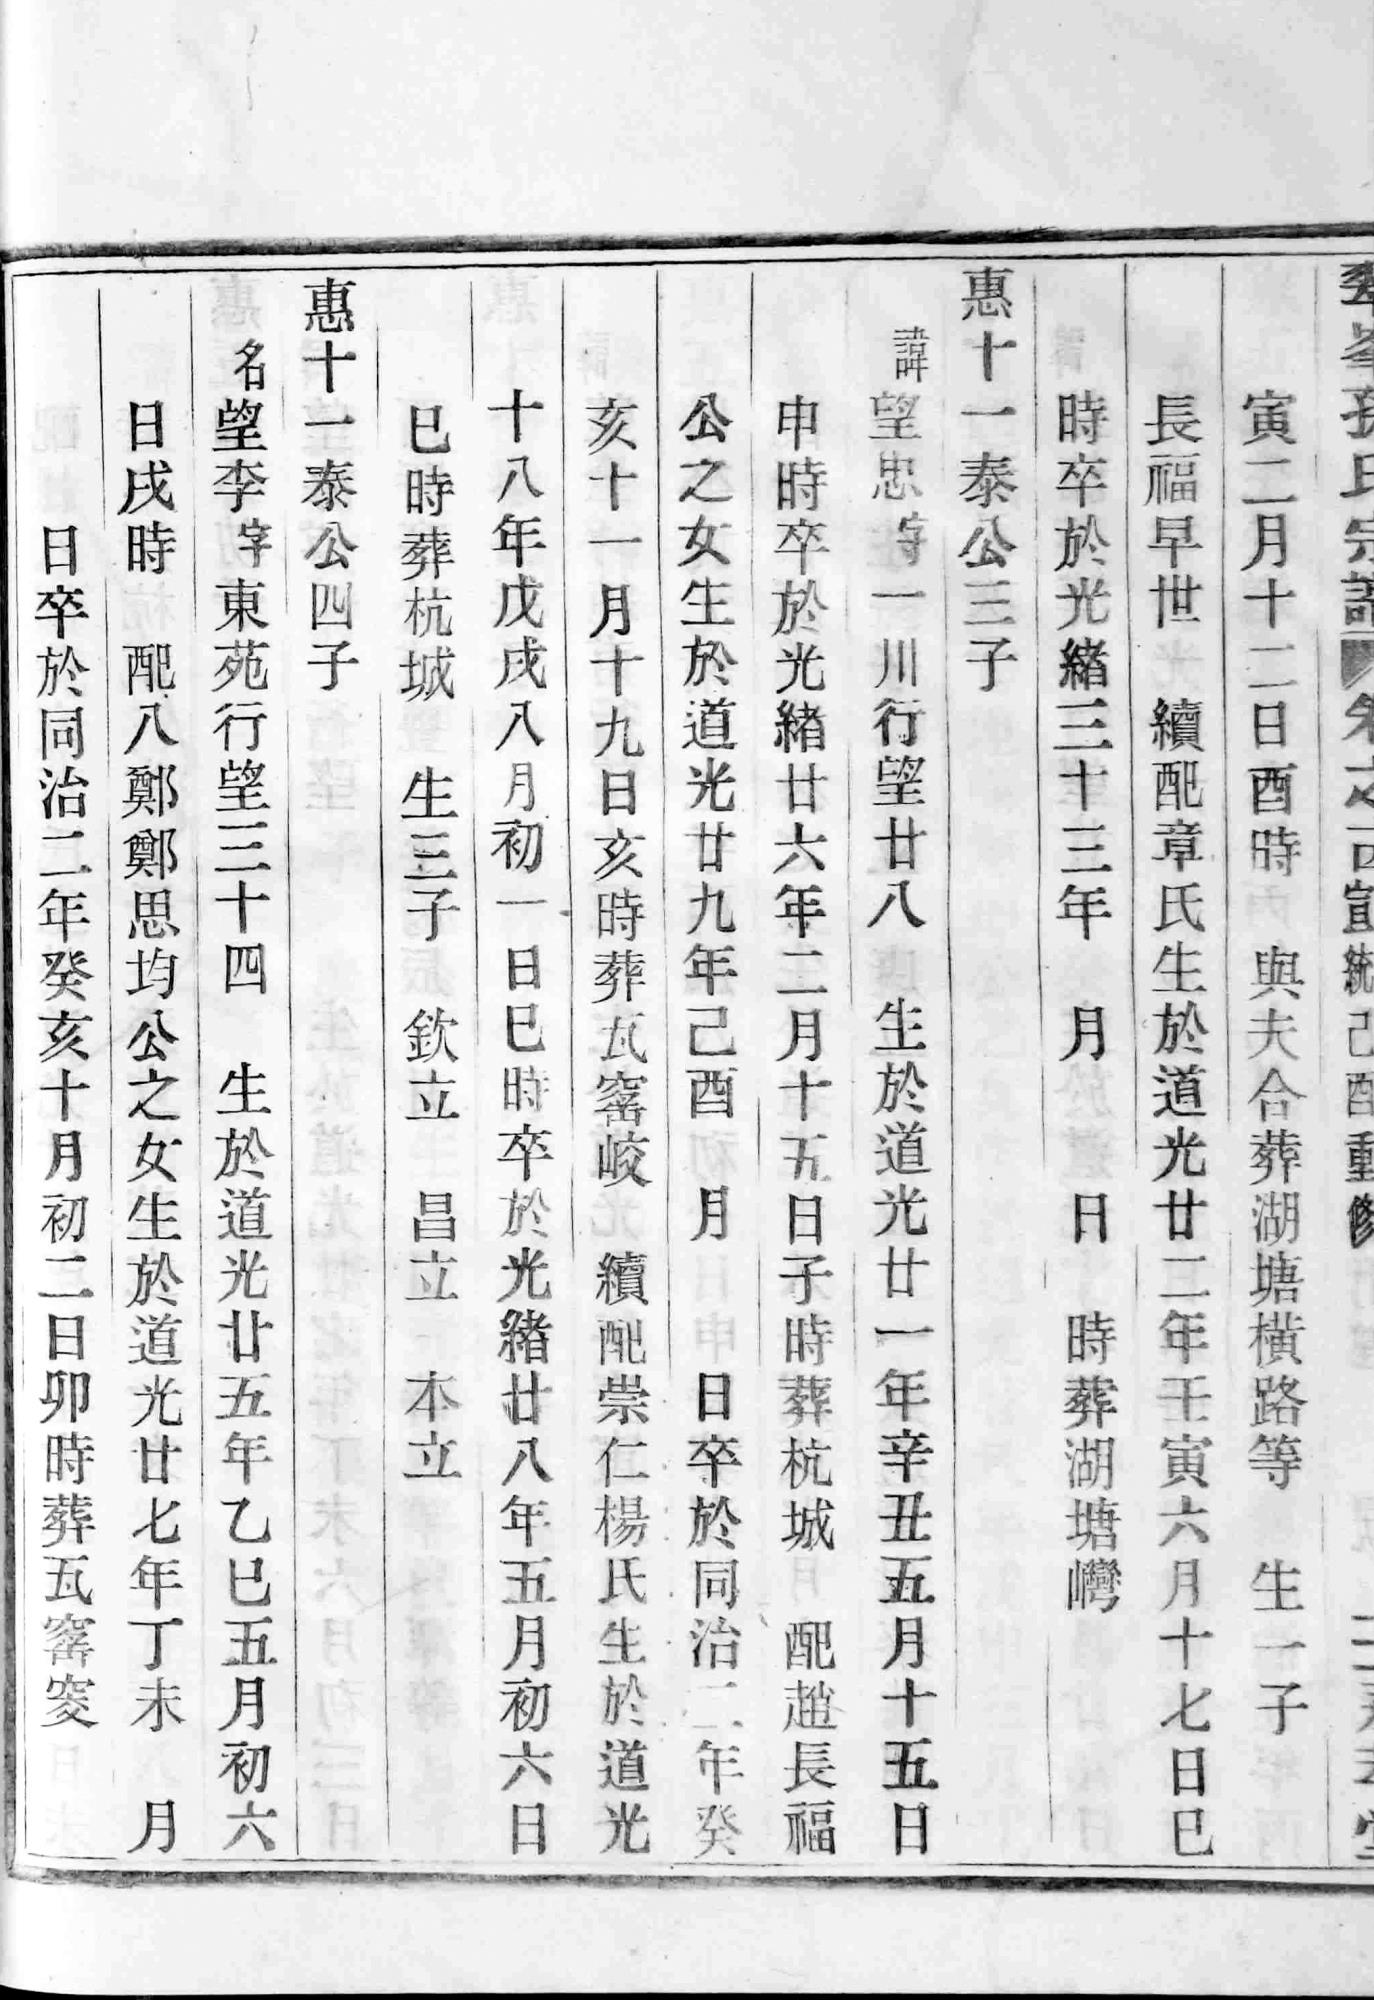 孫氏宗譜 卷之 宣統己酉重修
寅二月十二日酉時　與夫合葬湖塘橫路等　生一子
長福早世　續配章氏生於道光廿二年壬寅六月十七日巳
時卒於光緒三十三年　月　　日　時葬湖塘灣
惠十一泰公三子
諱望忠字一川行望廿八　生於道光廿一年辛丑五月十五日
申時卒於光緒廿六年二月十五日子時葬杭城　配趙長福
公之女生於道光廿九年己酉　月　　日卒於同治二年癸
亥十一月十九日亥時葬瓦窰峧　續配崇仁楊氏生於道光
十八年戊戌八月初一日巳時卒於光緒廿八年五月初六日
巳時葬杭城　生三子　欽立　昌立　本立
惠十一泰公四子
名望李字東苑行望三十四　生於道光廿五年乙巳五月初六
日戌時　配八鄭鄭思均公之女生於道光廿七年丁未　月
日卒於同治二年癸亥十月初二日卯時葬瓦窰